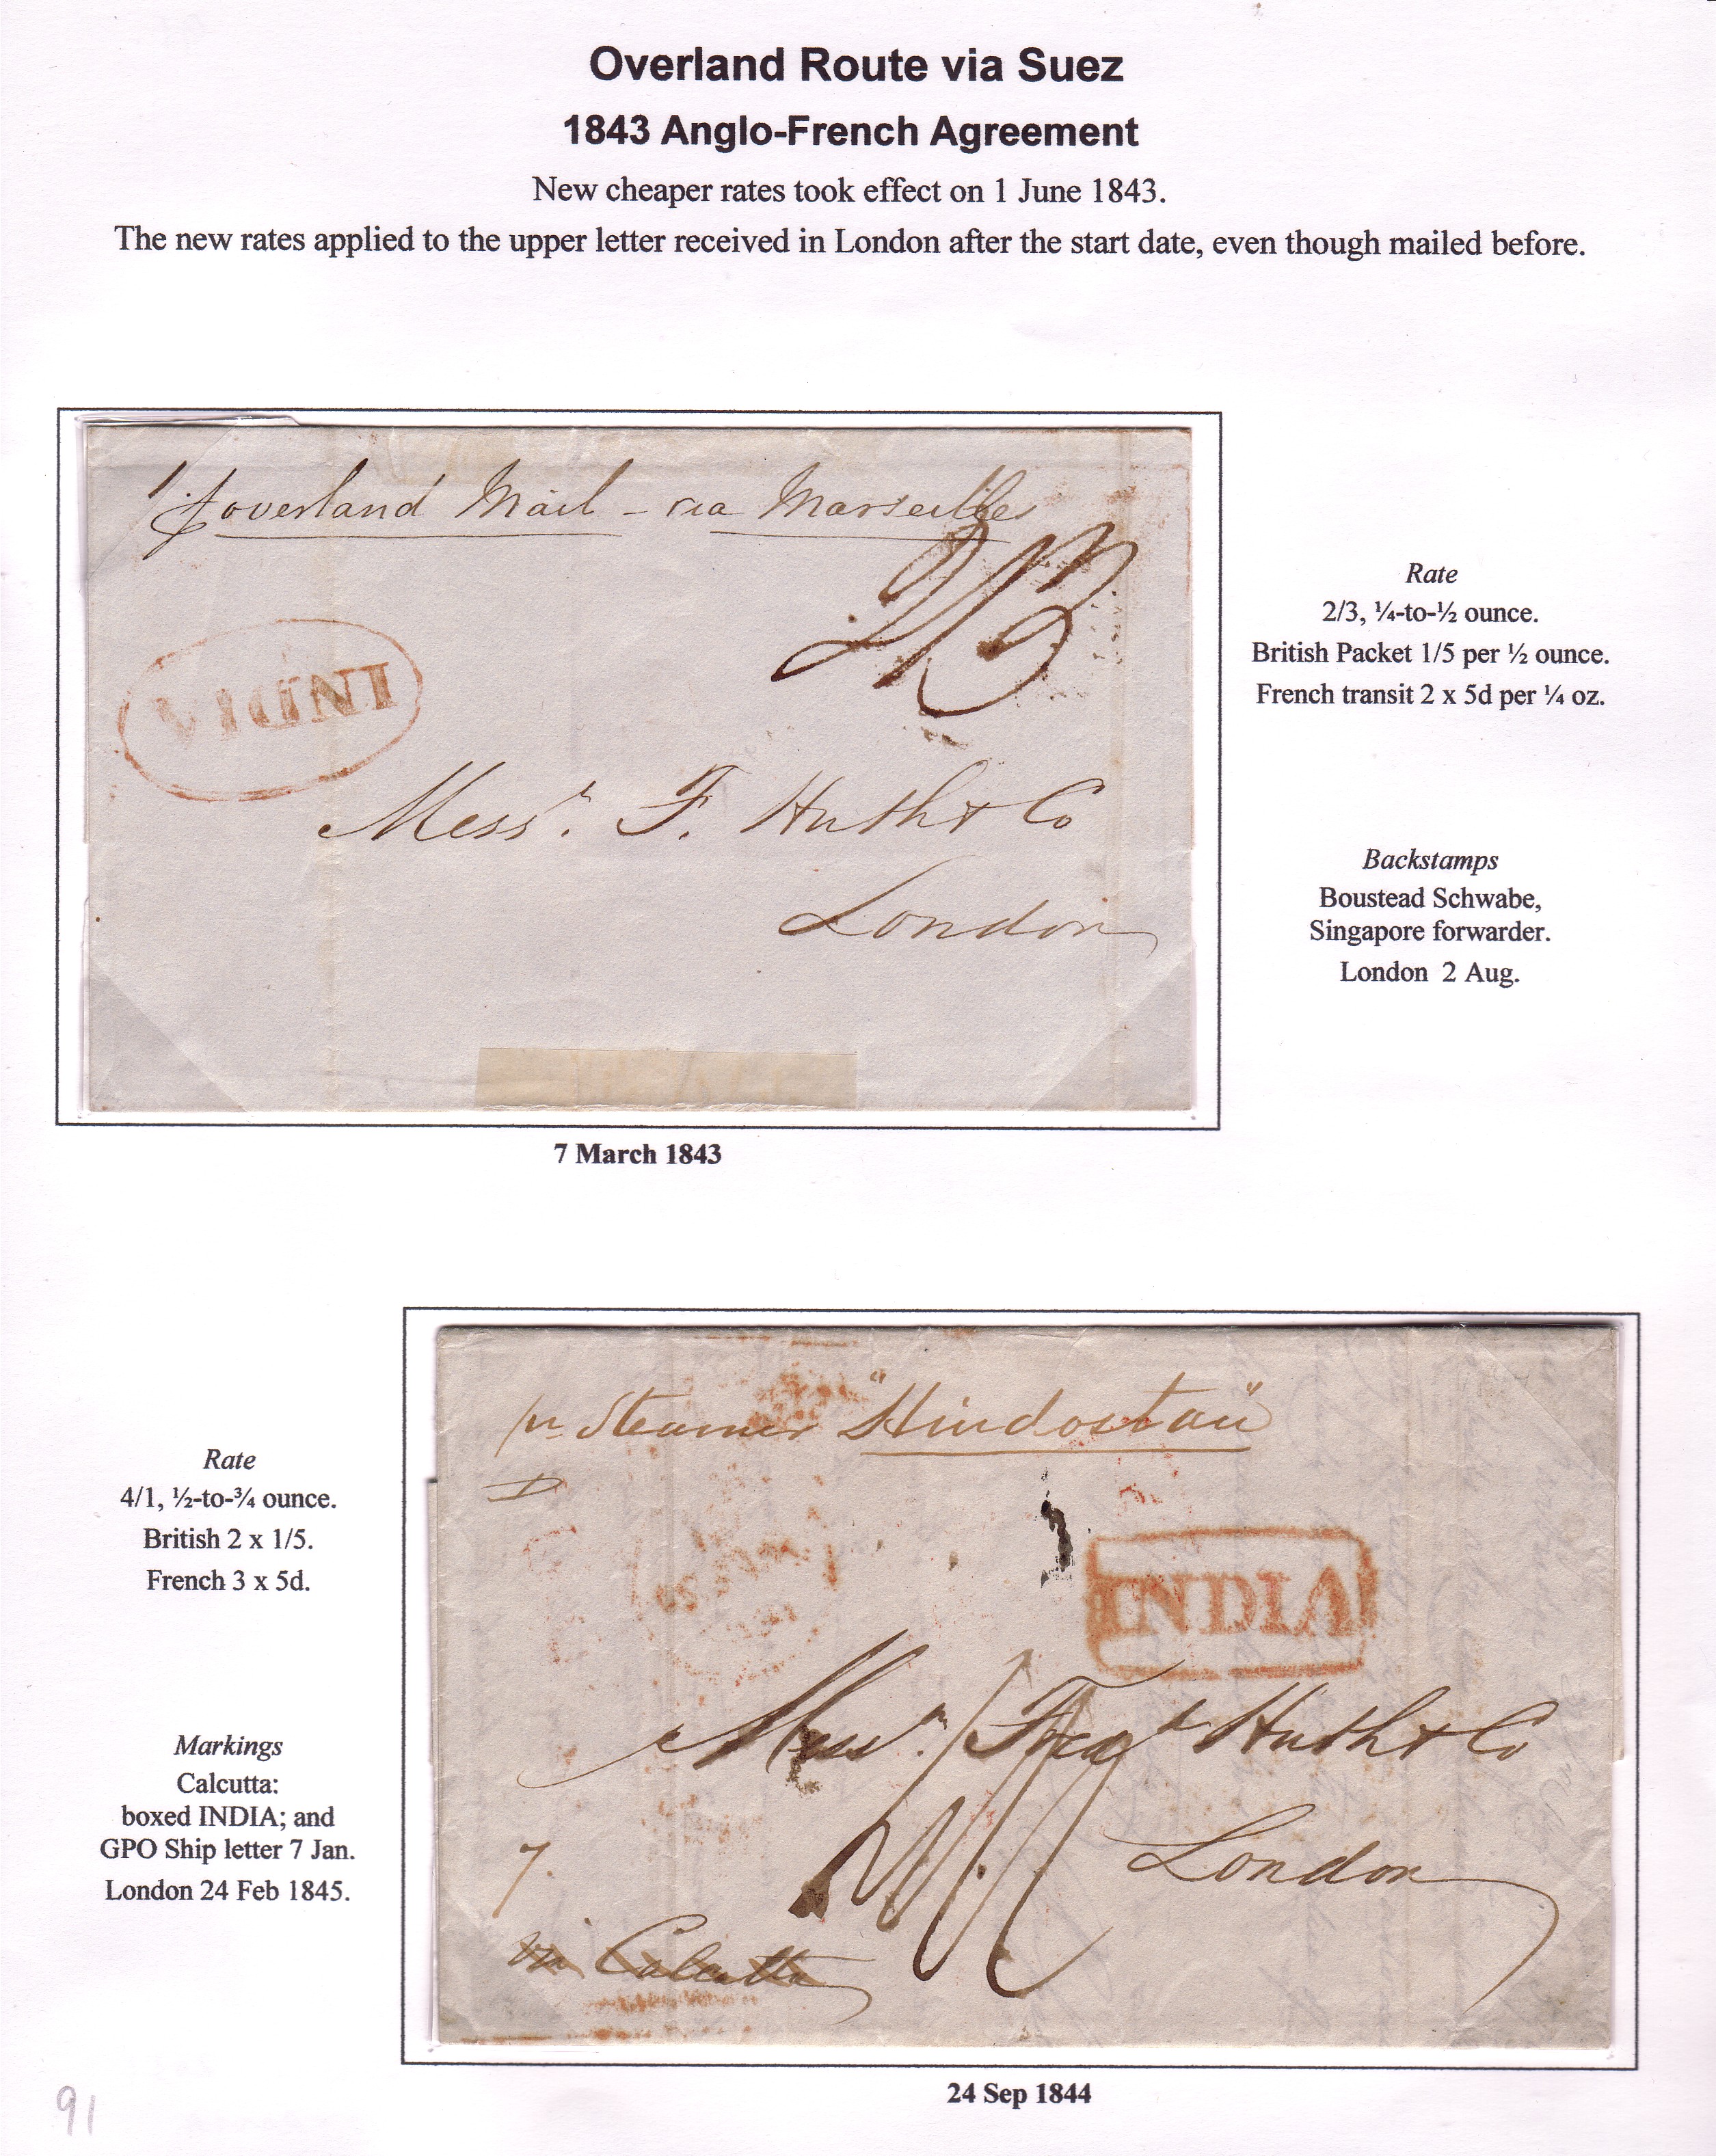 Overland Route via Suez
1843 Anglo-French Agreement
New cheaper rates took effect on 1 June 1843.
The new rates applied to the upper letter received in London after the start date, even though mailed before.
overland Mail - via Marseilles
2/3
INDIA
Messrs. F. Huth & Co
London
Rate
2/3, ¼-to-½ ounce.
British Packet 1/5 per ½ ounce.
French transit 2 x 5d per ¼ oz.
Backstamps
Boustead Schwabe,
Singapore forwarder.
London 2 Aug.
7 March 1843
pr Steamer "Hindostan"
INDIA
Messrs. Fredk Huth & Co
4/1
London
7.
via Calcutta
Rate
4/1, ½-to-¾ ounce.
British 2 x 1/5.
French 3 x 5d.
Markings
Calcutta:
boxed INDIA; and
GPO Ship letter 7 Jan.
London 24 Feb 1845.
24 Sep 1844
91